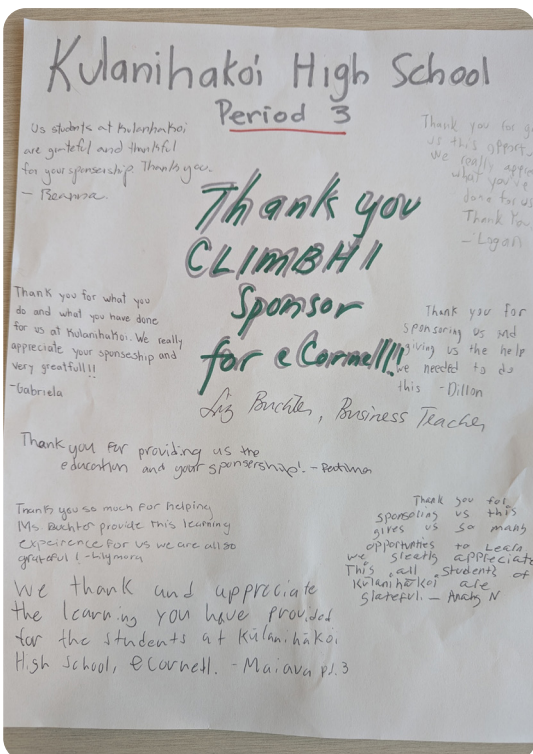 Kulanihakoi High School
Period 3
Us students at Kulanihakoi
are grateful and thankful
for your sponsership. Thank you.
- Beanna
Thank you for
us this opport
We really appre
what you've
done for us
Thank You
- Logan
Thank you
CLIMBHI
Sponsor
for eCornell!!!
Liz Buchter, Business Teacher
Thank you for what you
do and what you have done
for us at Kulanihakoi. We really
appreciate your sponseship and
very greatfull!!
-Gabriela
Thank you for
sponsoring us and
giving us the help
we needed to do
this -Dillon
Thank you for providing us the
education and your sponsership! -
Thank you so much for helping
Ms. Buchter provide this learning
expeirence for us we are all so
grateful! - Lilymora
Thank you for
sponsoring us this
gives us so many
opportunties to Learn
we greatly appreciate
This. all students of
Kulanihakoi are
grateful. - N
We thank and appreciate
the learning you have provided
for the students at Kūlanihākoi
High School, eCornell. - Maiava pd.3